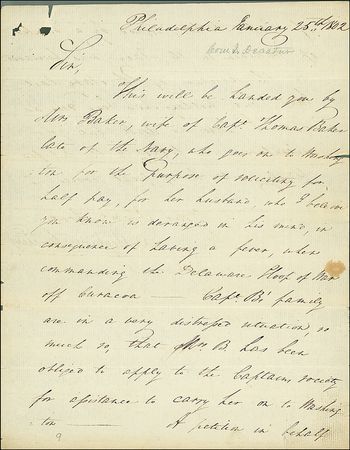 Philadelphia January 25th 1802
Com S Decatur
Sir,
This will be handed you by
Mrs Baker, wife of Capt Thomas Baker
late of the Navy, who goes on to Washing
ton for the purpose of soliciting for
half pay, for her husband, who I believe
you know is deranged in his mind, in
consequence of having a fever, when
commanding the Delaware Sloop of War
off Curacoa — Capt Bs family
are in a very distressed situation so
much so, that Mrs B. has been
obliged to apply to the Captains society
for assistance to carry her on to Washing
ton — A petition in behalf